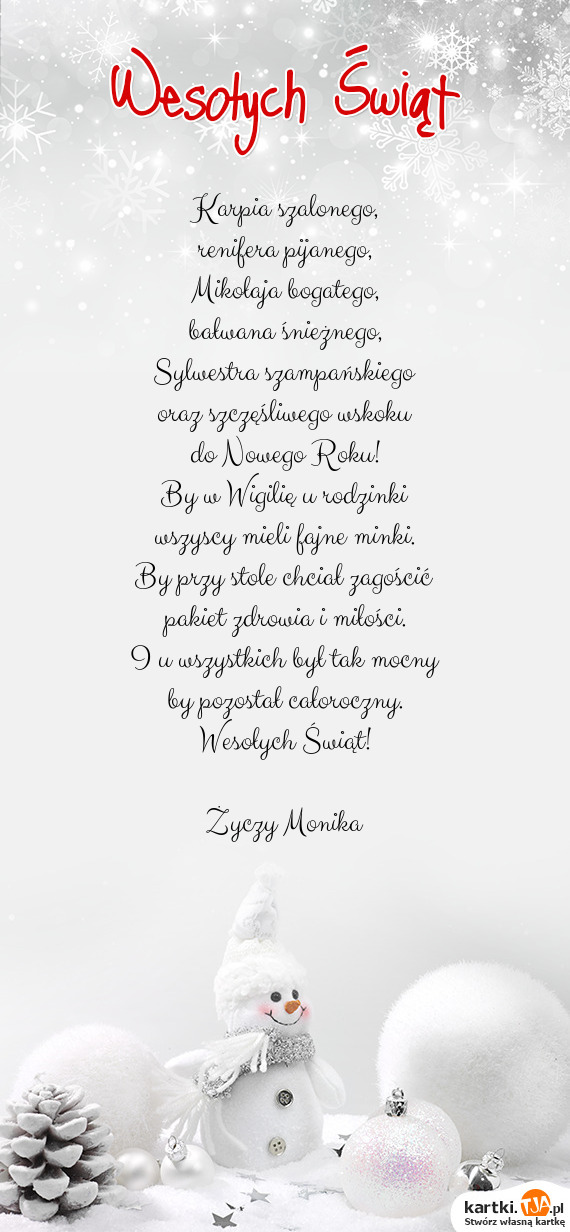 Wesołych Świąt
Karpia szalonego,
renifera pijanego,
Mikołaja bogatego,
bałwana śnieżnego,
Sylwestra szampańskiego
oraz szczęśliwego wskoku
do Nowego Roku!
By w Wigilię u rodzinki
wszyscy mieli fajne minki.
By przy stole chciał zagościć
pakiet zdrowia i miłości.
I u wszystkich był tak mocny
by pozostał całoroczny.
Wesołych Świąt!
Życzy Monika
kartki.TJA.pl
Stwórz własną kartkę